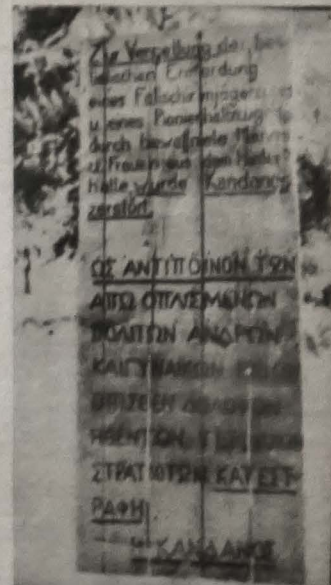 Zur Vergeltung der bes-
tialischen Ermordung
eines Fallschirmjägers
u. eines Pionierhalbzug
durch bewaffnete Männer
u. Frauen aus dem
wurde Kandanos
zerstört.
ΩΣ ΑΝΤΙΠΟΙΝΟΝ ΤΩΝ
ΑΠΟ ΟΠΛΙΣΜΕΝΩΝ
ΠΟΛΙΤΩΝ ΑΝΔΡΩΝ
ΚΑΙ ΓΥΝΑΙΚΩΝ
ΟΠΙΣΘΕΝ ΔΟΛΟΦΟΝ
ΗΘΕΝΤΩΝ ΓΕΡΜΑΝΩΝ
ΣΤΡΑΤΙΩΤΩΝ ΚΑΤΕΣΤ-
ΡΑΦΗ
Η ΚΑΝΔΑΝΟΣ